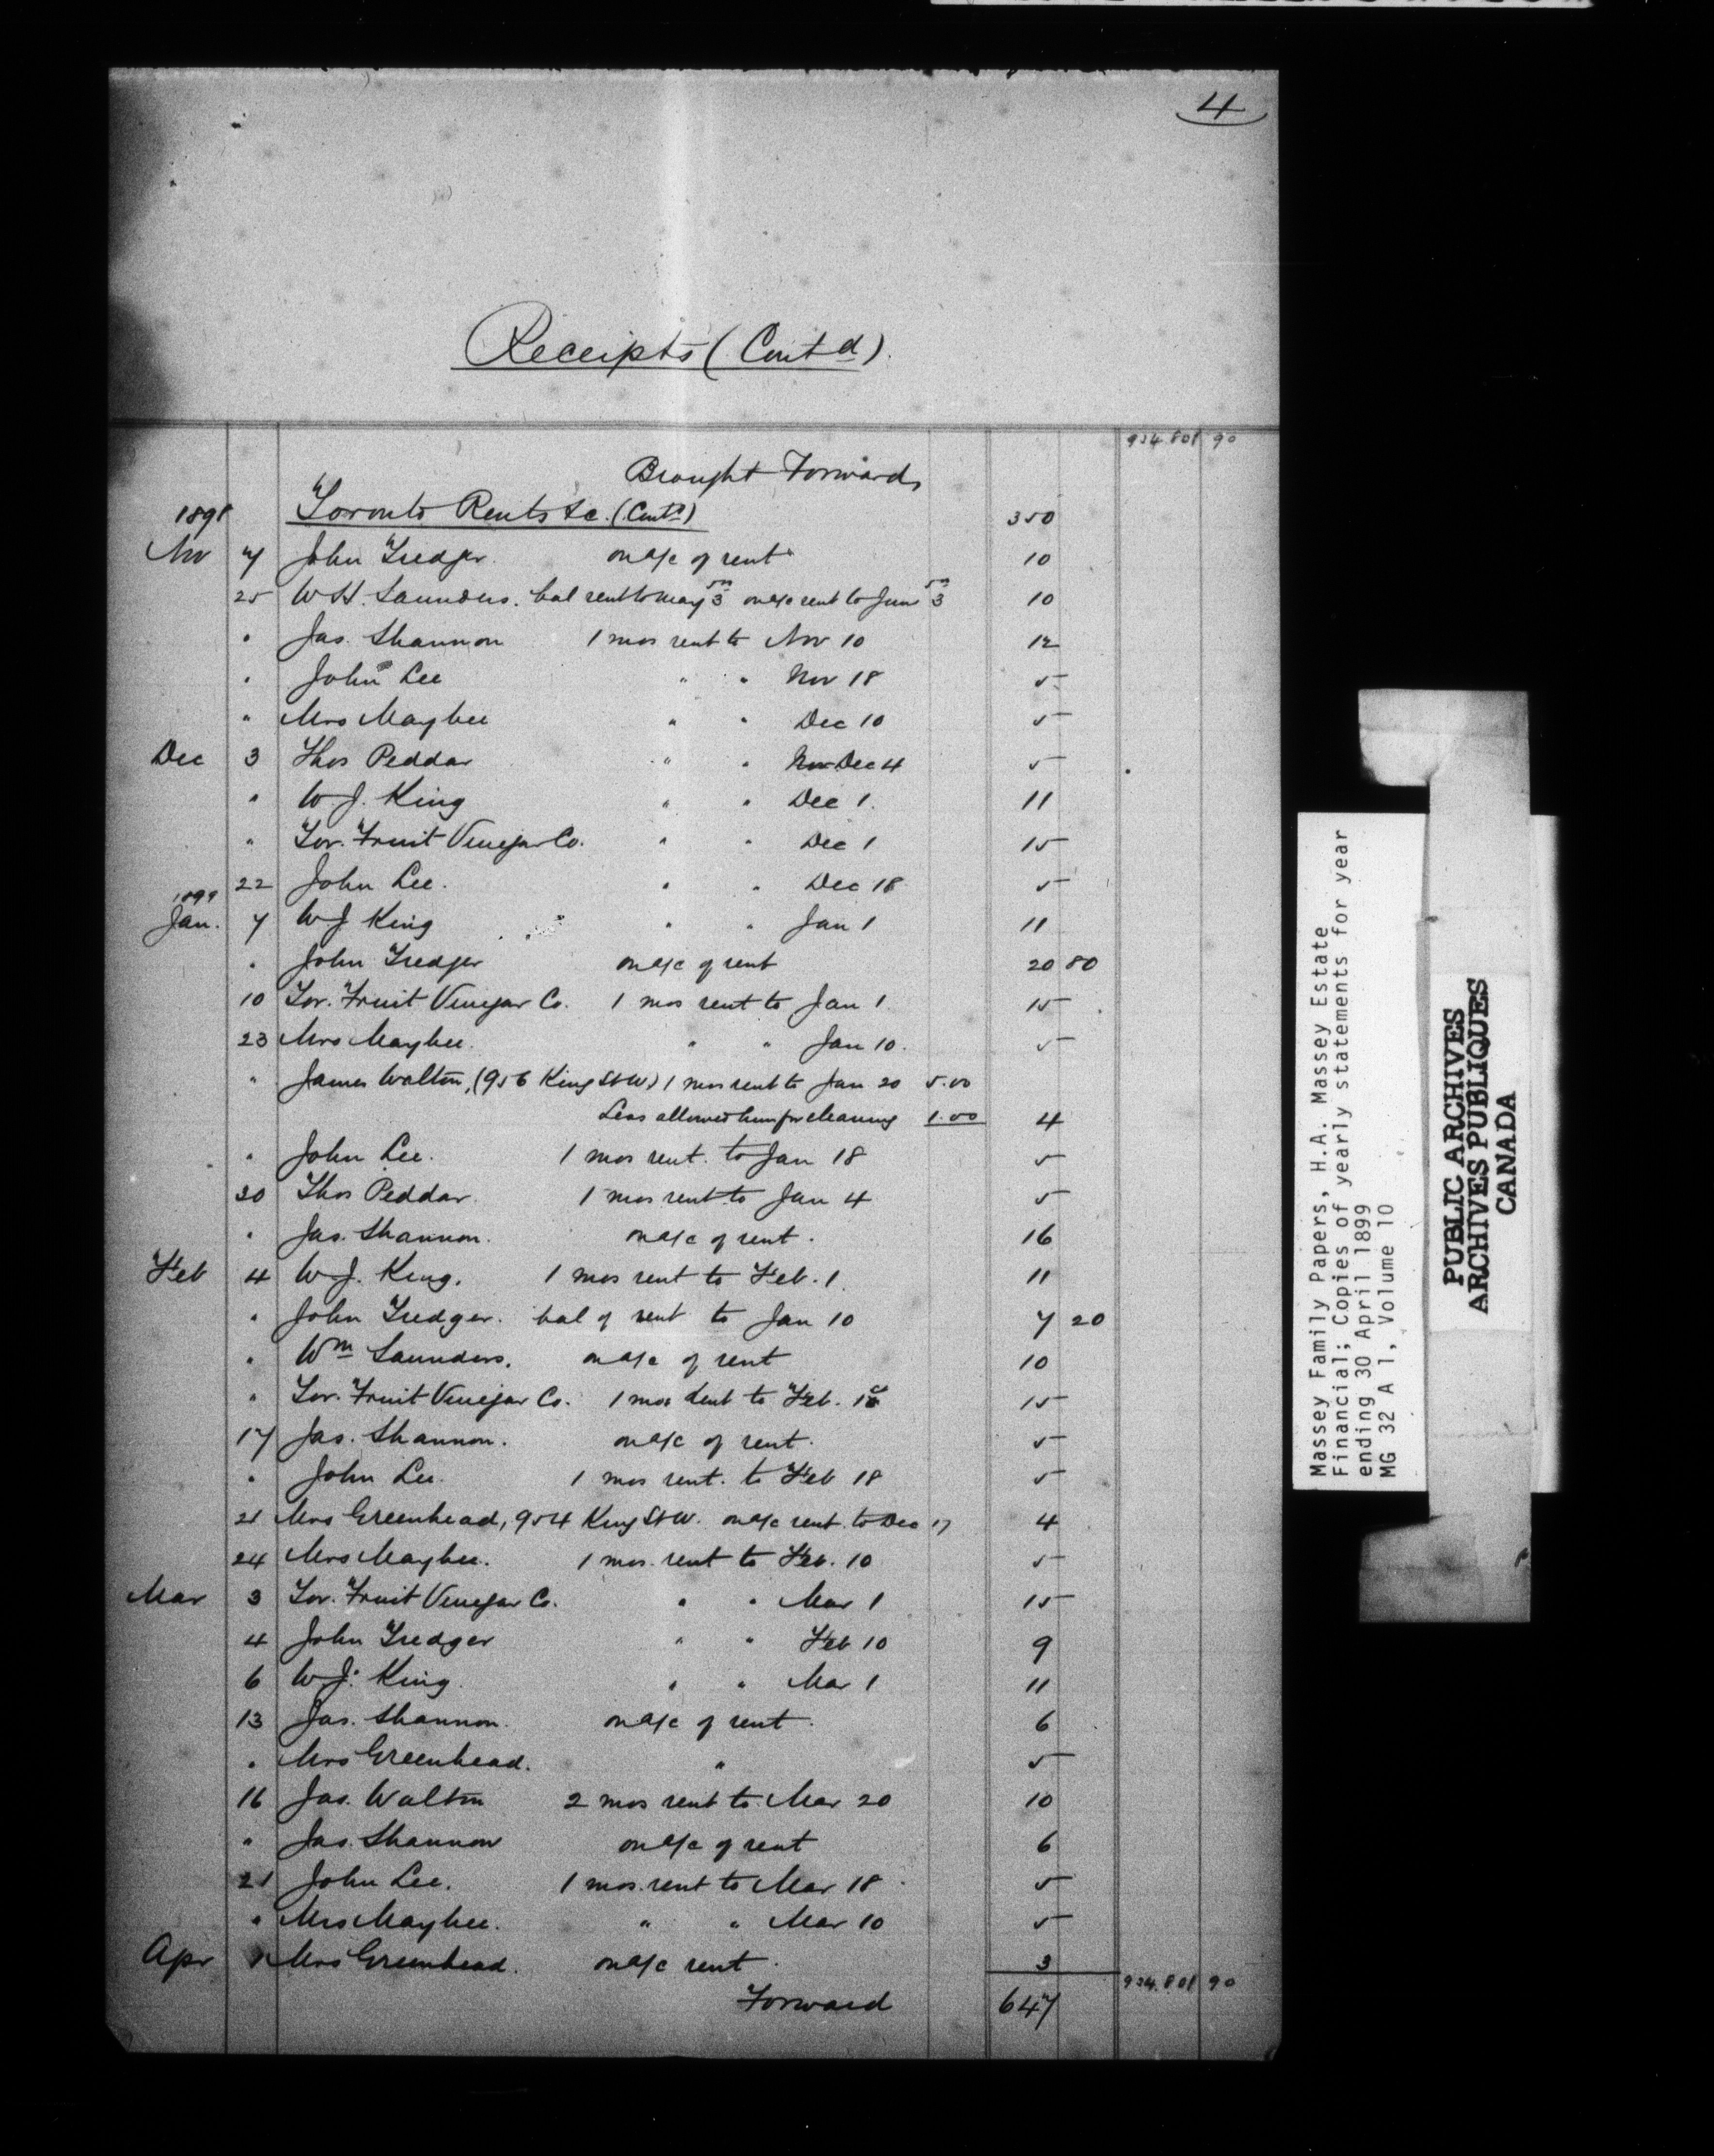 4
Receipts (Contd).
934.808 90
Brought Forward
1898 Toronto Rents &c. (Contd) 350
Nov 7 John Tredger. on a/c of rent 10
25 W H. Saunders. bal rent to May 3 on a/c rent to June 3 10
" Jas. Shannon 1 mos rent to Nov 10 12
" John Lee " " Nov 18 5
" Mrs Maybee " " Dec 10 5
Dec 3 Thos Peddar " " Nov Dec 4 5
" W. J. King " " Dec 1. 11
" Tor. Fruit Vinegar Co. " " Dec 1 15
22 John Lee. " " Dec 18 5
1899
Jan. 7 W J King " " Jan 1 11
" John Tredger on a/c of rent 20 80
10 Tor. Fruit Vinegar Co. 1 mos rent to Jan 1. 15
23 Mrs Maybee. " " Jan 10. 5
" James Walton, (956 King St W) 1 mos rent to Jan 20 5.00
Less allowed him for cleaning 1.00 4
" John Lee. 1 mos rent. to Jan 18 5
30 Thos Peddar. 1 mos rent to Jan 4 5
" Jas. Shannon. on a/c of rent. 16
Feb 4 W J. King. 1 mos rent to Feb. 1. 11
" John Tredger. bal of rent to Jan 10 7 20
" Wm Saunders. on a/c of rent 10
" Tor. Fruit Vinegar Co. 1 mos rent to Feb. 1 15
17 Jas. Shannon. on a/c of rent. 5
" John Lee. 1 mos rent. to Feb 18 5
21 Mrs Greenhead, 954 King St W. on a/c rent to Dec 17 4
24 Mrs Maybee. 1 mos. rent to Feb. 10 5
Mar 3 Tor. Fruit Vinegar Co. " " Mar 1 15
4 John Tredger " " Feb 10 9
6 W J. King. " " Mar 1 11
13 Jas. Shannon. on a/c of rent. 6
" Mrs Greenhead. " 5
16 Jas. Walton 2 mos rent to Mar 20 10
" Jas. Shannon on a/c of rent 6
21 John Lee. 1 mos. rent to Mar 18 5
" Mrs Maybee. " " Mar 10 5
Apr Mrs Greenhead. on a/c rent. 3
934.808 90
Forward 647
Massey Family Papers, H.A. Massey Estate
Financial; Copies of yearly statements for year
ending 30 April 1899
MG 32 A 1, Volume 10
PUBLIC ARCHIVES
ARCHIVES PUBLIQUES
CANADA